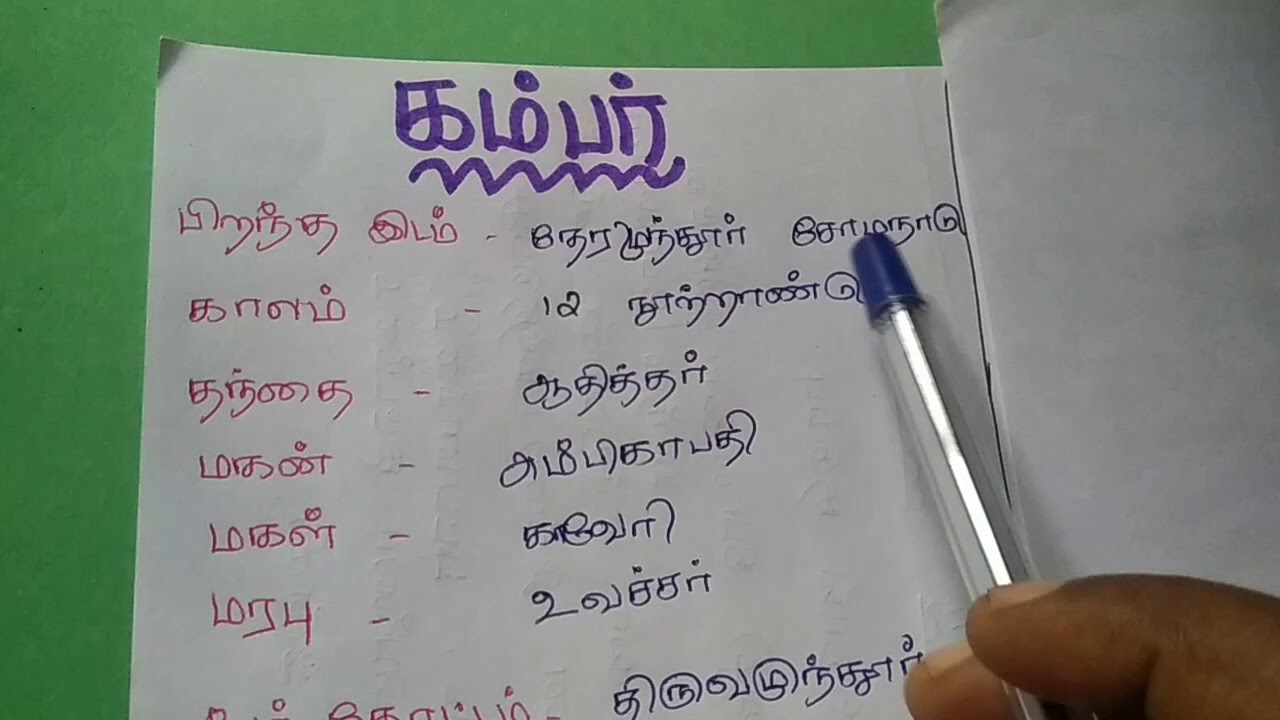 கம்பர்
பிறந்த இடம் - தேரழுந்தூர் சோழநாடு
காலம் - 12 நூற்றாண்டு
தந்தை - ஆதித்தர்
மகன் - அம்பிகாபதி
மகள் - காவேரி
மரபு - உவச்சர்
திருவழுந்தூர்